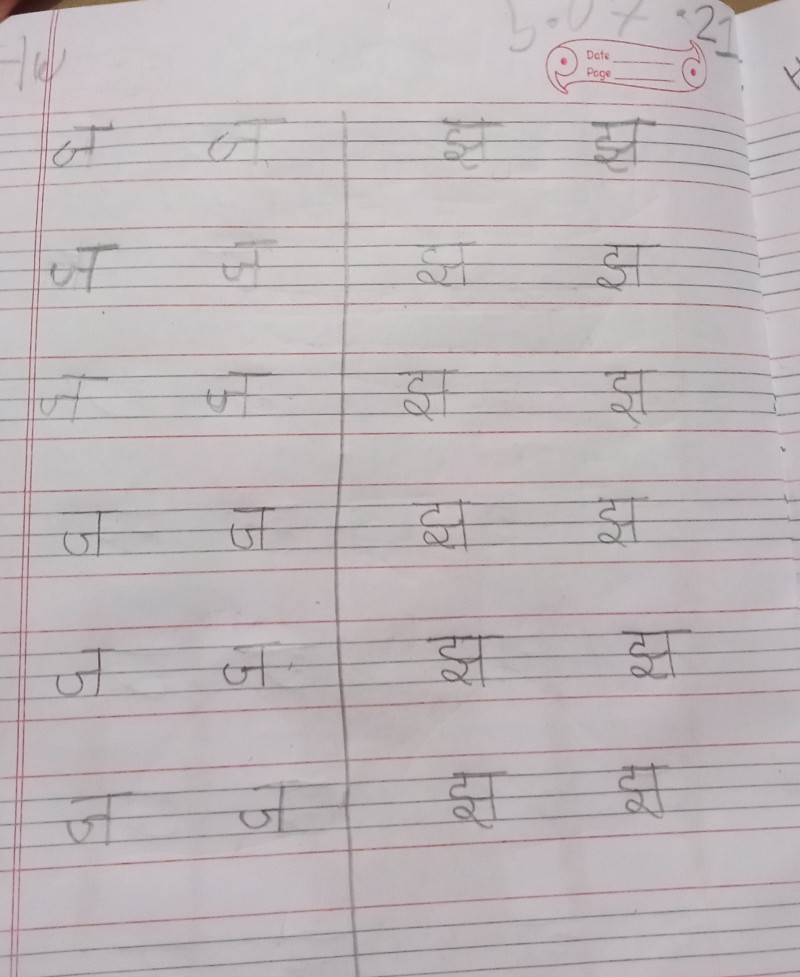 H/W
5.07.21
Date
Page
ज ज झ झ
ज ज झ झ
ज ज झ झ
ज ज झ झ
ज ज झ झ
ज ज झ झ